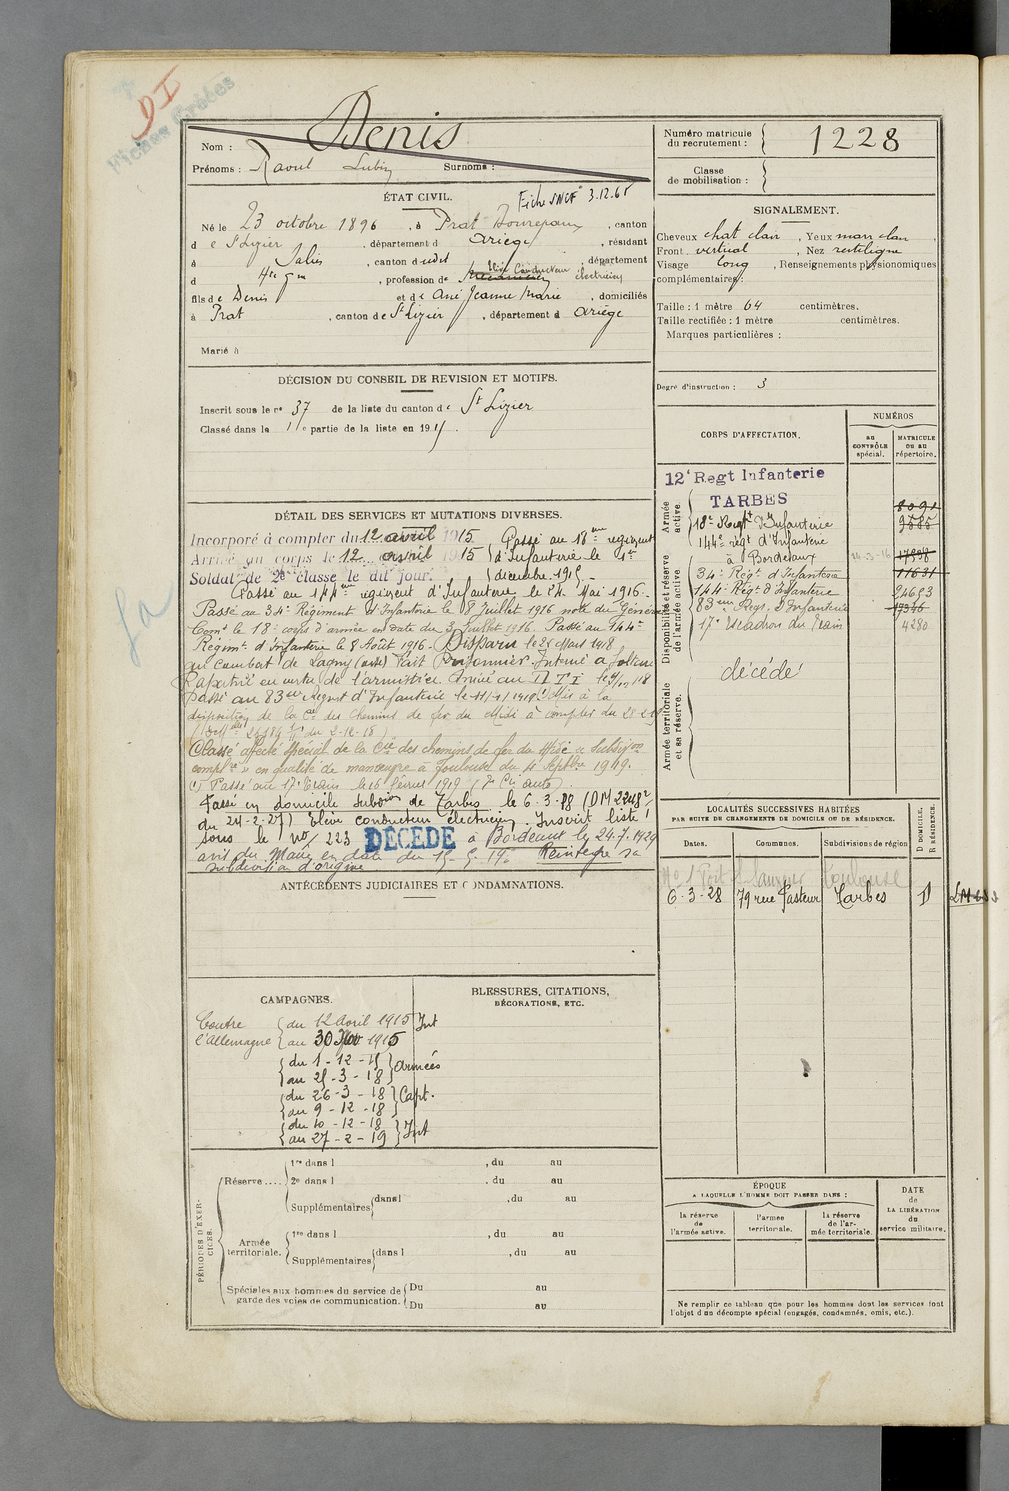 DI
Fiches Créées
Nom : Denis
Prénoms : Raoul Lubin Surnoms :
Numéro matricule du recrutement : 1228
Classe de mobilisation :
ÉTAT CIVIL.
Fiche SNCF 3.12.65
Né le 23 octobre 1896, à Prat Bonrepaux, canton
d e St Lizier, département d Ariège, résidant
à Salies, canton d udit, département
d Hte Gne, profession de Elève Conducteur électricien
fils de Denis et de Ané Jeanne Marie, domiciliés
à Prat, canton de St Lizier, département d Ariège
Marié à
SIGNALEMENT.
Cheveux chat clair, Yeux marr clair,
Front vertical, Nez rectiligne
Visage long, Renseignements physionomiques
complémentaires :
Taille : 1 mètre 64 centimètres.
Taille rectifiée : 1 mètre centimètres.
Marques particulières :
Degré d'instruction : 3
DÉCISION DU CONSEIL DE REVISION ET MOTIFS.
Inscrit sous le no 37 de la liste du canton de St Lizier
Classé dans la 1re partie de la liste en 1915.
CORPS D'AFFECTATION.
NUMÉROS
AU CONTRÔLE spécial.
MATRICULE OU AU répertoire.
Armée active.
12e Regt Infanterie
TARBES
18e Regt d'Infanterie
144e régt d'Infanterie
à Bordeaux
Disponibilité et réserve de l'armée active.
34e Régt d'Infanterie 11631
144e Régt d'Infanterie 24693
83eme Regt. D'Infanterie 17346
17e Escadron du Train 4280
Armée territoriale et sa réserve.
décédé
DÉTAIL DES SERVICES ET MUTATIONS DIVERSES.
Incorporé à compter du 12 avril 1915. Passé au 18eme régiment
Arrivé au corps le 12 avril 1915 d'Infanterie le 1er
Soldat de 2e classe le dit jour. décembre 1915.-
Passé au 144me régiment d'Infanterie le 24 Mai 1916.-
Passé au 34e Régiment d'Infanterie le 8 Juillet 1916 note du Général
Comt le 18e corps d'armée en date du 3 Juillet 1916. Passé au 144e
Régimt. d'Infanterie le 8 Août 1916.- Disparu le 25 Mars 1918
au combat de Lagny (oise) Fait Prisonnier. Interné à
Rapatrié en vertu de l'armistice. Arrivé au
Passé au 83eme Regmt d'Infanterie le 11/1/1919 (1) Mis à la
disposition de la Cie des Chemins de fer du Midi à compter du 28-2-19
Classé affecté spécial de la Cie des chemins de fer du Midi
en qualité de manœuvre à Toulouse du 4 Septbre 1919.
(1) Passé au 17e Train le 16 février 1919
Passé en domicile subdion de Tarbes le 6-3-28 (DM 2248
du 24-2-27) Elève conducteur électricien. Inscrit liste
sous le No 223 DÉCÉDÉ à Bordeaux le 24.7.1929
avis du Maire en date du Réintègre sa
subdivision d'origine
ANTÉCÉDENTS JUDICIAIRES ET CONDAMNATIONS.
LOCALITÉS SUCCESSIVES HABITÉES
PAR SUITE DE CHANGEMENTS DE DOMICILE OU DE RÉSIDENCE.
Dates. Communes. Subdivisions de région D DOMICILE. R RÉSIDENCE.
Toulouse
6-3-28 79 rue Pasteur Tarbes D
CAMPAGNES.
Contre l'Allemagne
du 12 Avril 1915 au 30 Nov 1915 Int
du 1-12-15 au 25-3-18 Armées
du 26-3-18 au 9-12-18 Capt.
du 10-12-18 au 27-2-19 Int
BLESSURES, CITATIONS,
DÉCORATIONS, ETC.
PÉRIODES D'EXERCICES.
Réserve .... 1re dans l , du au
2e dans l , du au
Supplémentaires dans l , du au
Armée territoriale. 1re dans l , du au
Supplémentaires dans l , du au
Spéciales aux hommes du service de garde des voies de communication. Du au
Du au
ÉPOQUE
A LAQUELLE L'HOMME DOIT PASSER DANS :
la réserve de l'armée active.
l'armée territoriale.
la réserve de l'armée territoriale.
DATE de LA LIBÉRATION du service militaire.
Ne remplir ce tableau que pour les hommes dont les services font
l'objet d'un décompte spécial (engagés, condamnés, omis, etc.).